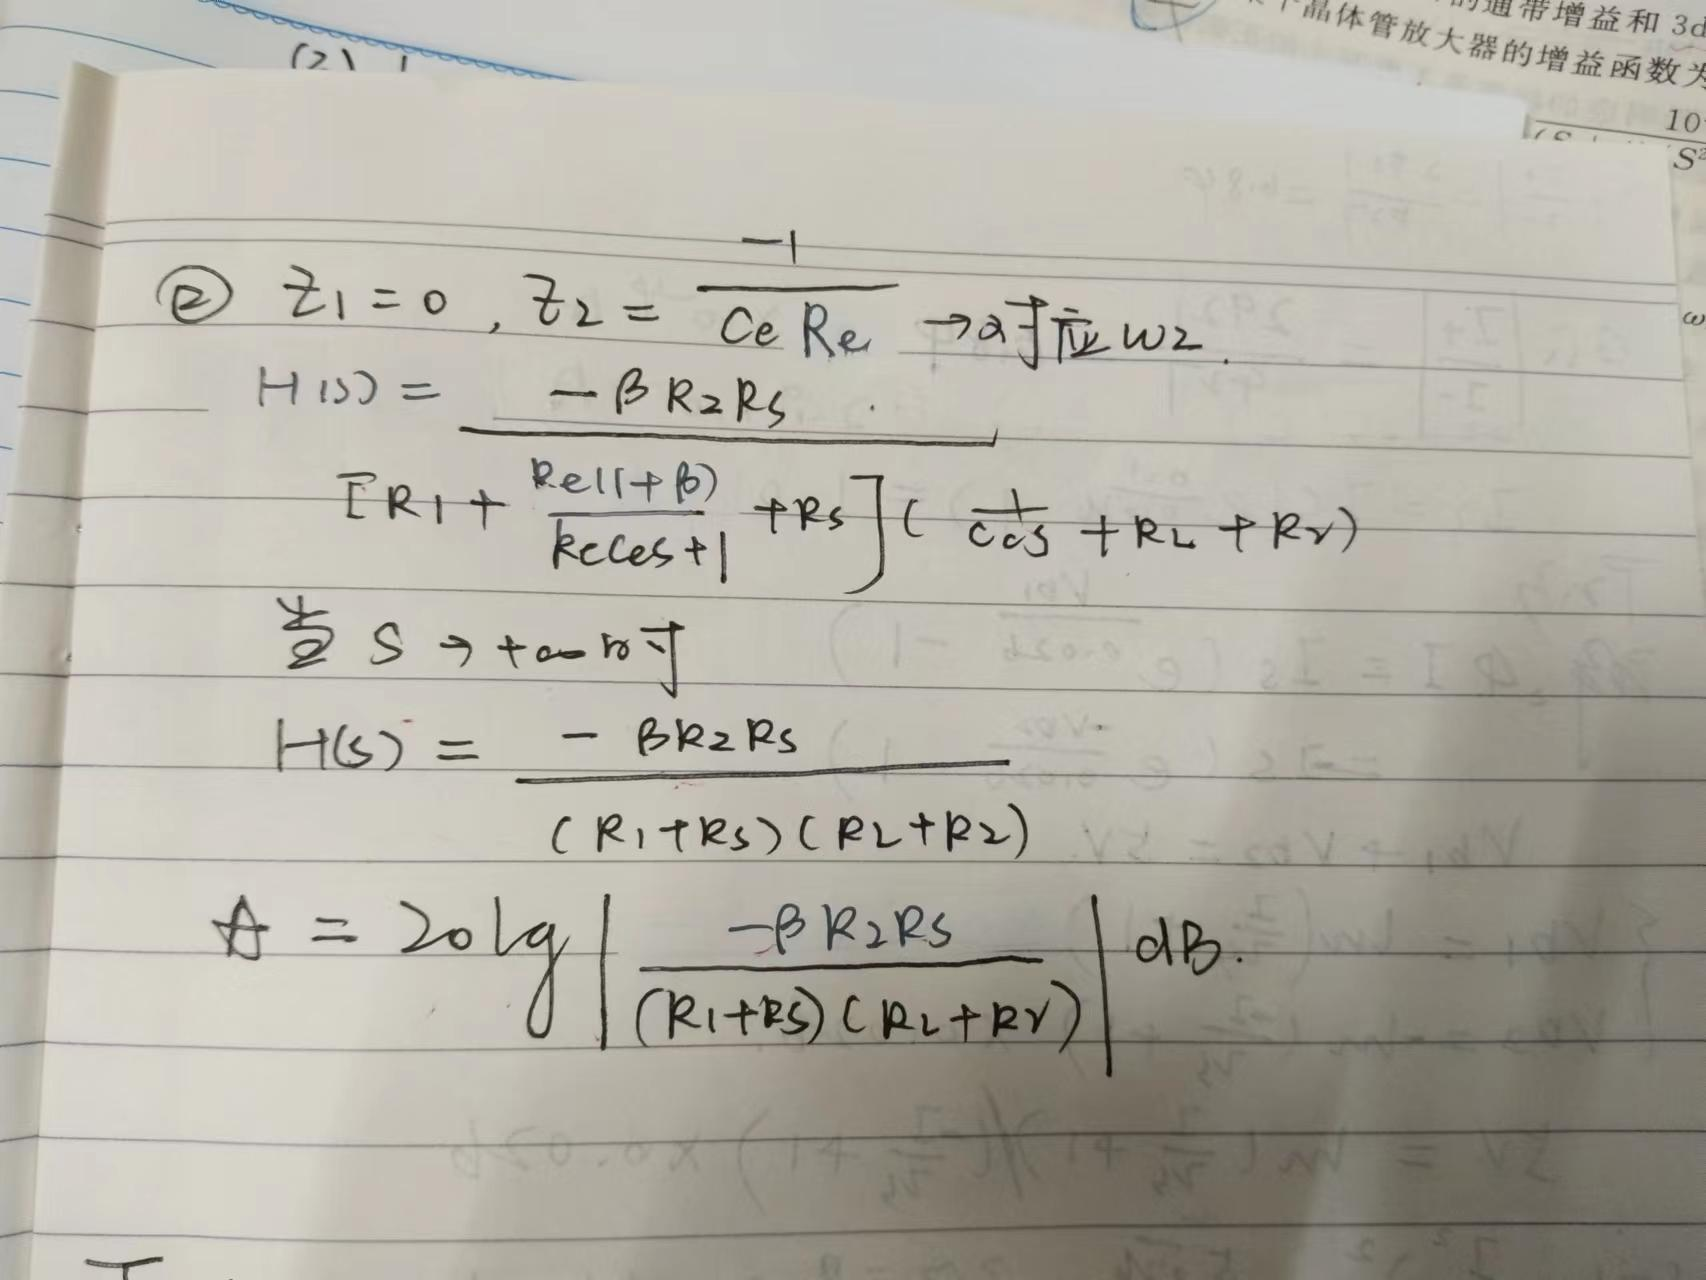 (2)
的通带增益和3d
晶体管放大器的增益函数为
10
S²
② Z1=0, Z2= -1/(CeRe) →对应ω2.
H(s) = -βR2Rs
[R1+ Re(1+β)/(ReCes+1) +Rs] ( 1/(Ccs) +RL+Rr)
当 S→+∞时
H(s) = -βR2Rs
(R1+Rs)(RL+R2)
A = 20lg | -βR2Rs / (R1+Rs)(RL+Rr) | dB.